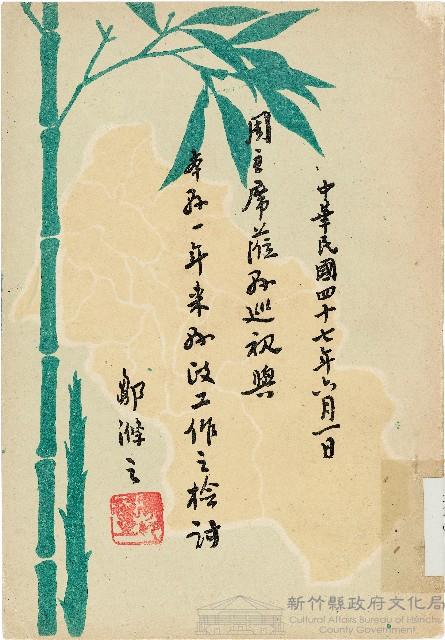 中華民國四十七年六月一日
周主席蒞縣巡視與
本縣一年來縣政工作之檢討
鄒滌之
新竹縣政府文化局
Cultural Affairs Bureau of Hsinchu
County Government